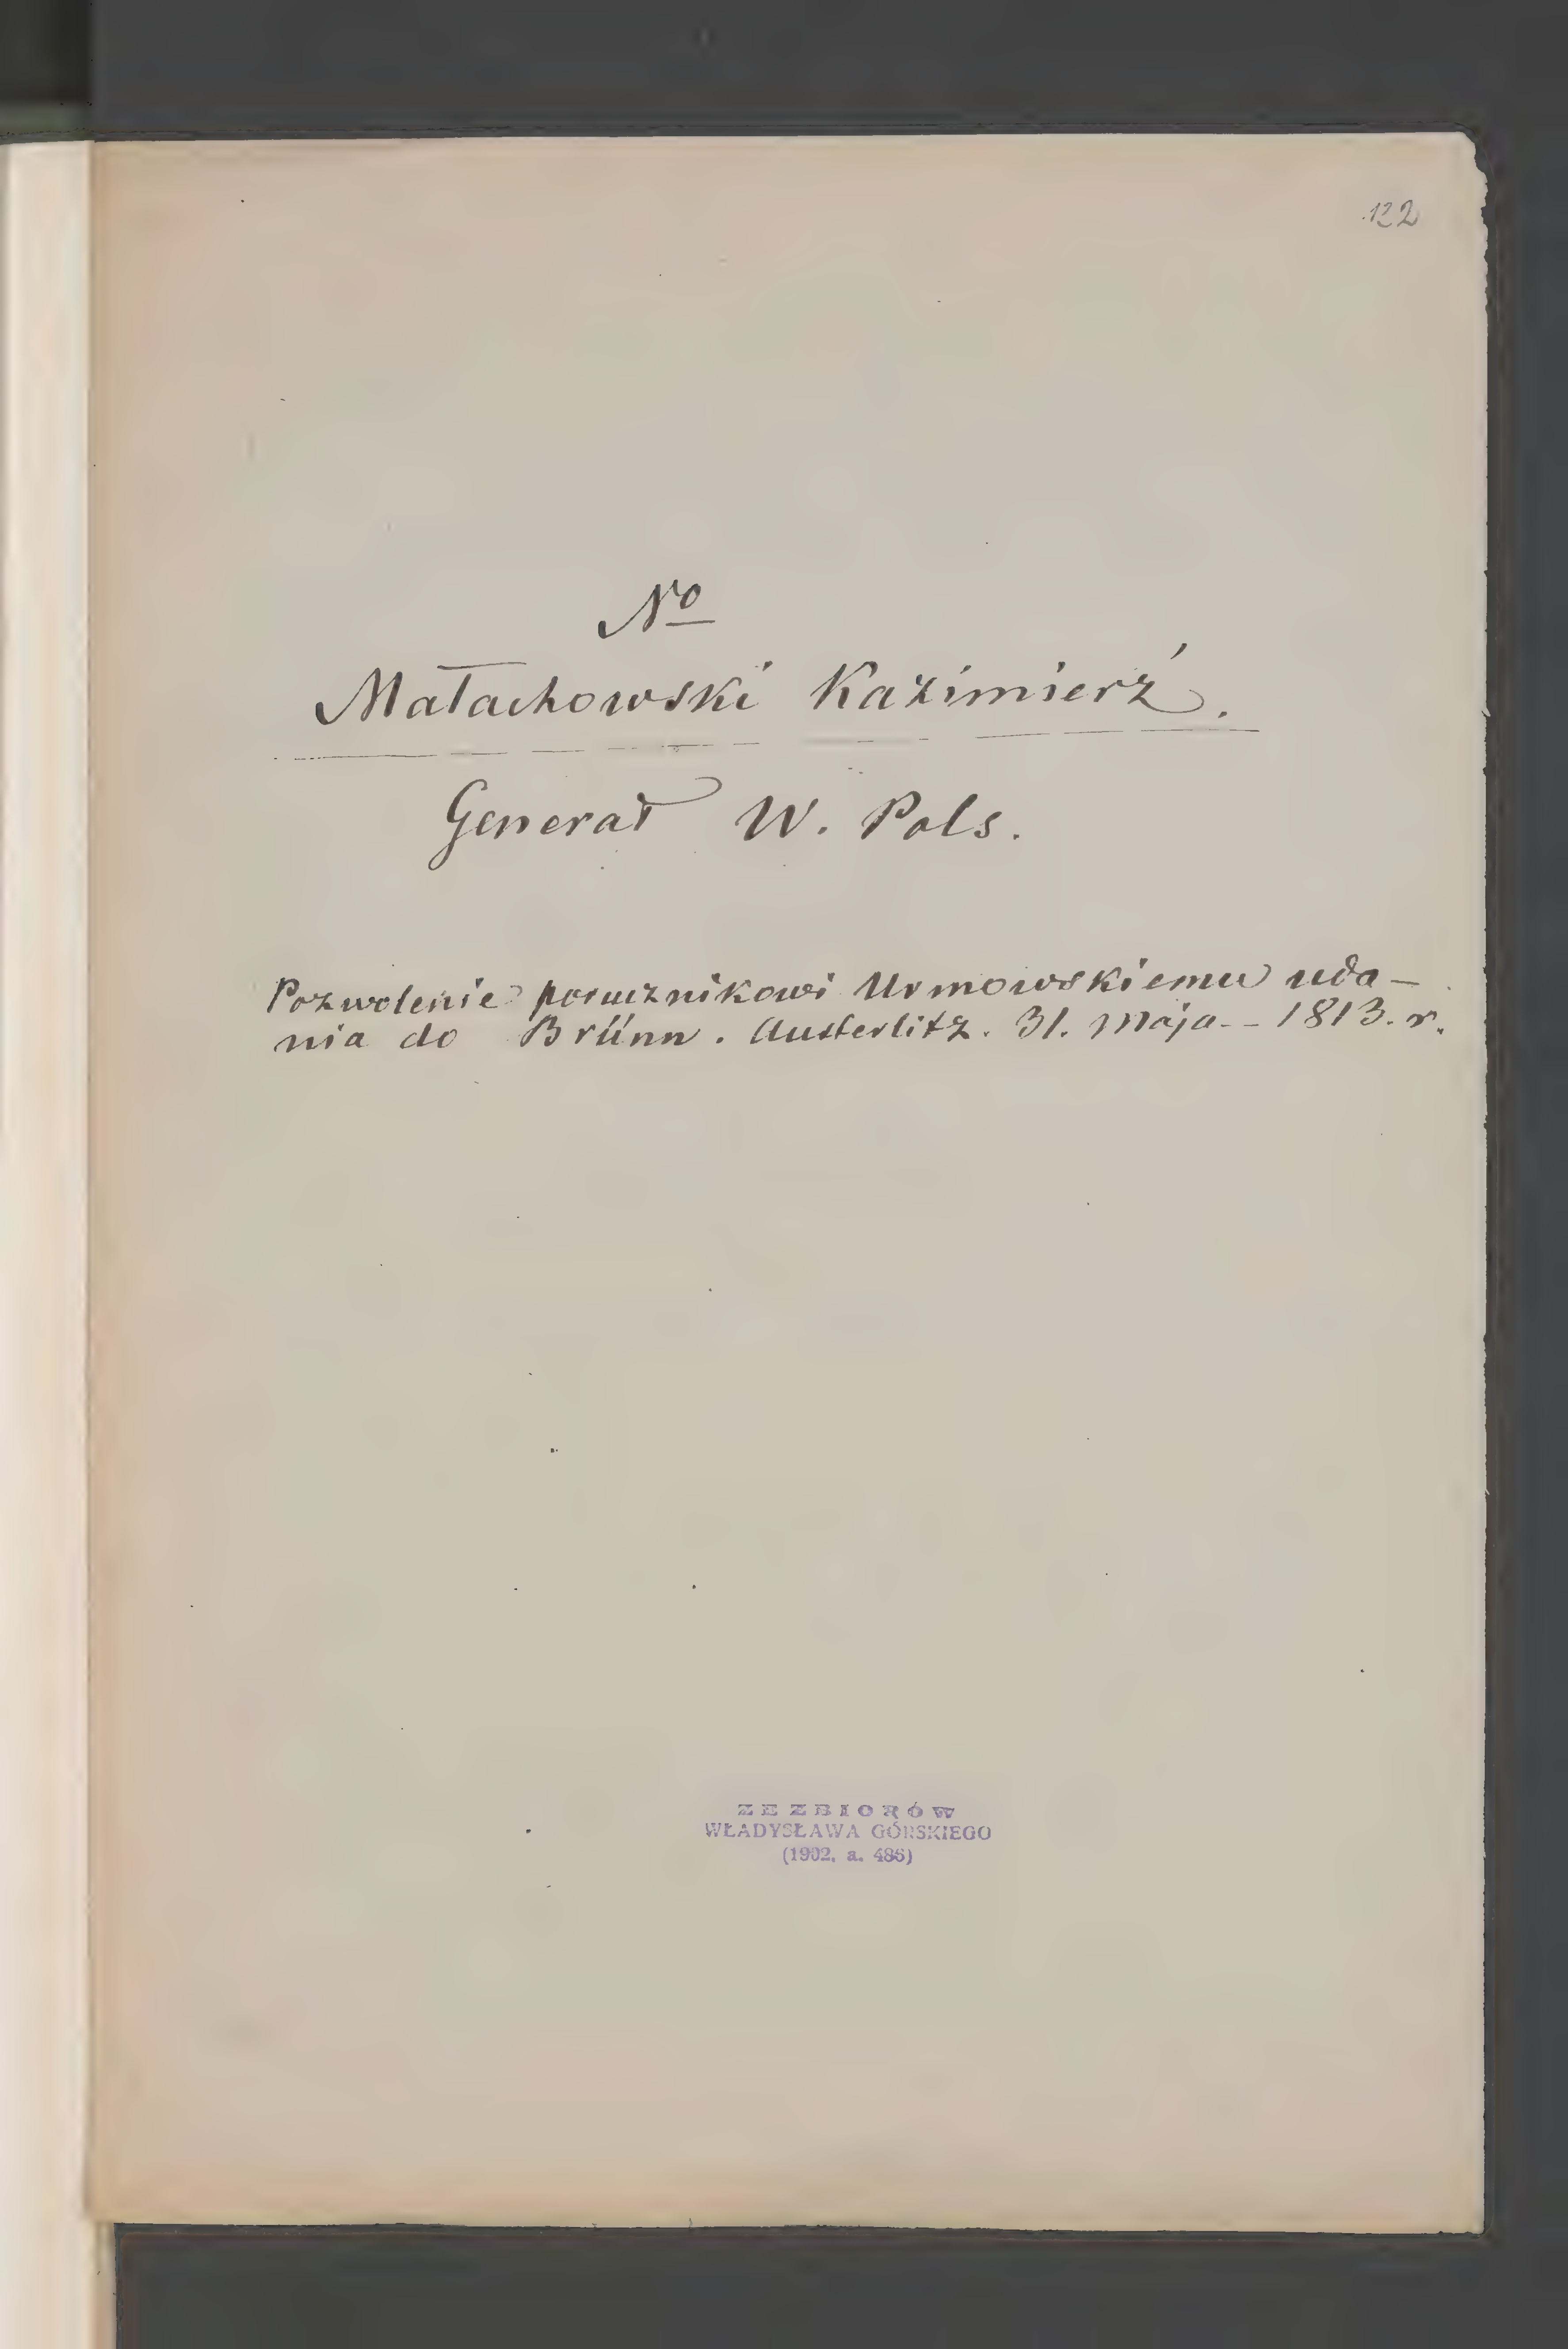 122
No
Małachowski Kazimierz.
Generał W. Pols.
Pozwolenie porucznikowi Urmowskiemu uda-
nia do Brünn. Austerlitz. 31. Maja - 1813. r.
ZE ZBIORÓW
WŁADYSŁAWA GÓRSKIEGO
(1902, a. 486)